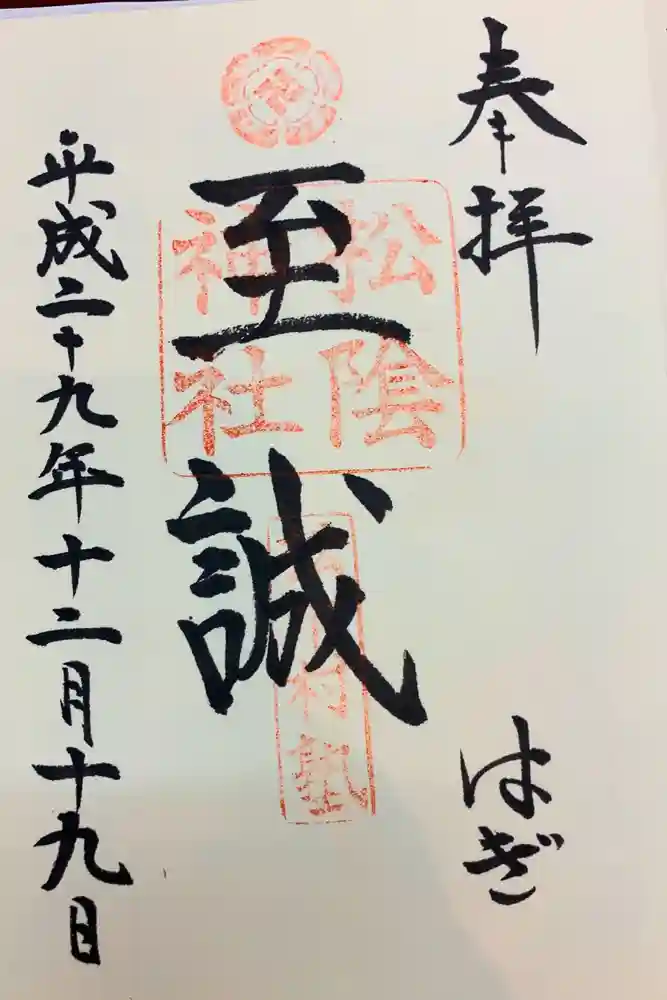 奉拝
はぎ
松陰
神社
至誠
村塾
平成二十九年十二月十九日